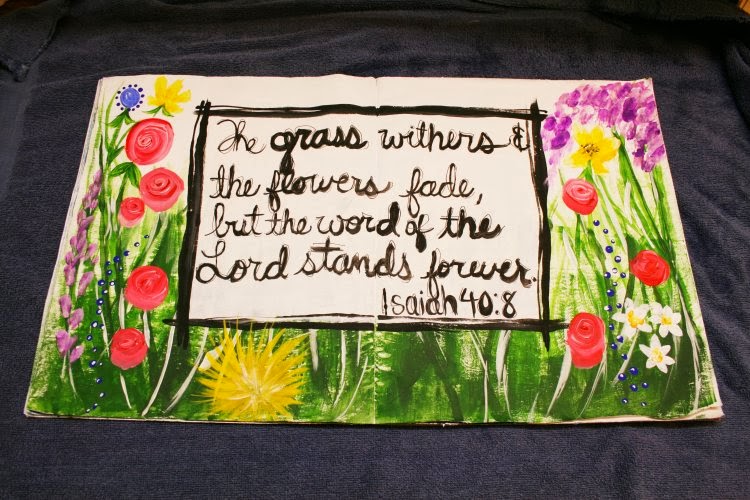 The grass withers &
the flowers fade,
but the word of the
Lord stands forever.
Isaiah 40:8